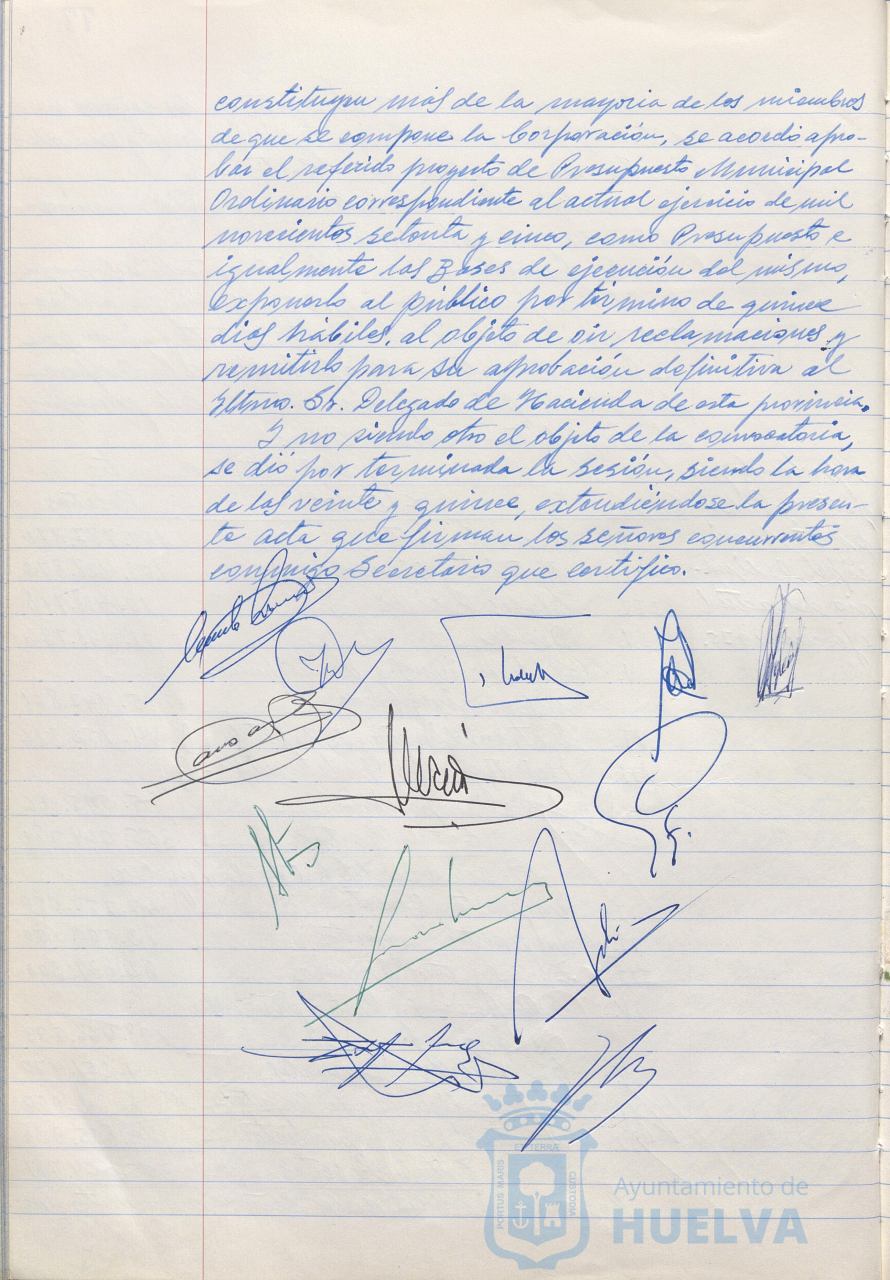 constituyen más de la mayoria de los miembros
de que se compone la Corporación, se acordó apro-
bar el referido proyecto de Presupuesto Municipal
Ordinario correspondiente al actual ejercicio de mil
novecientos setenta y cinco, como Presupuesto e
igualmente las Bases de ejecución del mismo,
exponerlo al público por término de quince
dias hábiles, al objeto de oir reclamaciones y
remitirlo para su aprobación definitiva al
Iltmo. Sr. Delegado de Hacienda de esta provincia.
Y no siendo otro el objeto de la convocatoria,
se dió por terminada la sesión, siendo la hora
de las veinte y quince, extendiéndose la presen-
te acta que firman los señores concurrentes
conmigo Secretario que certifico.
PORTUS MARIS
ET TERRAE
CUSTODIA
Ayuntamiento de
HUELVA